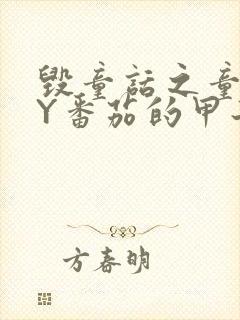 毁童话之童
Y番茄的甲
方春明